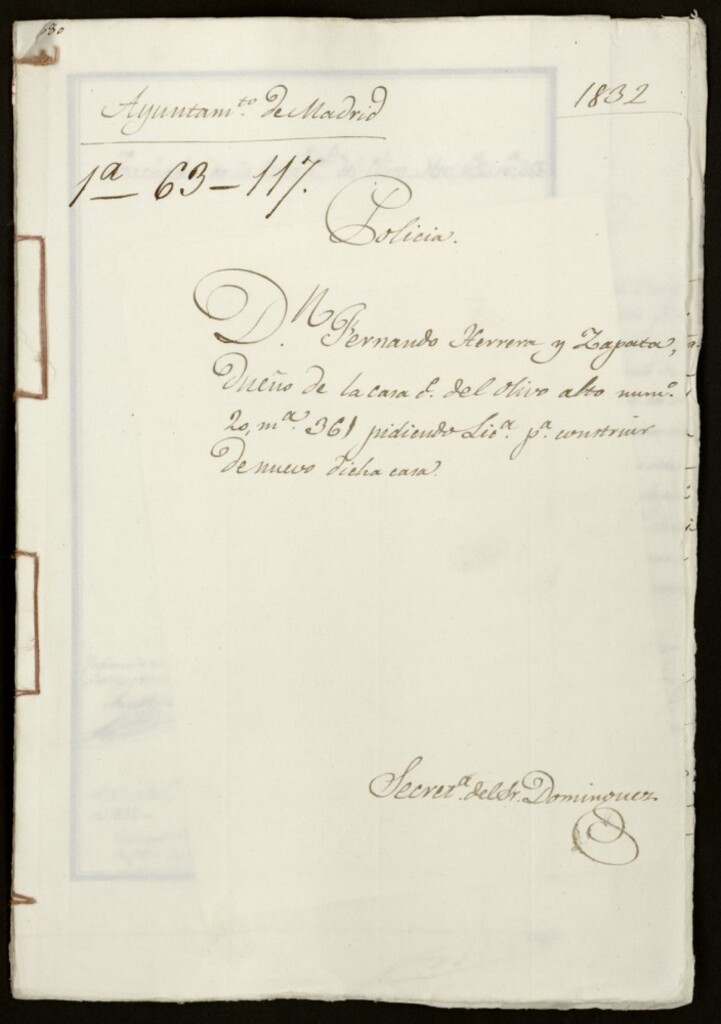 Ayuntam.to de Madrid
1832
1a — 63 — 117.
Policia.
D.n Fernando Herrera y Zapata,
dueño de la casa c. del Olivo alto num.o
20, m.a 361 pidiendo Lic.a p.a construir
de nuevo dicha casa.
Secret.a del Sr. Dominguez